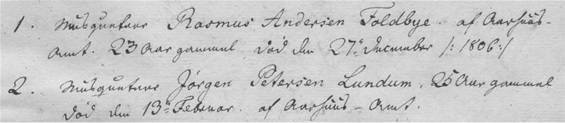 1. Musqueteer Rasmus Andersen Foldbye. af Aarhuus-
Amt. 23 Aar gammel død den 27de December /: 1806 :/
2. Musqueteer Jørgen Petersen Lundum, 25 Aar gammel
død den 13de Februar. af Aarhuus-Amt.